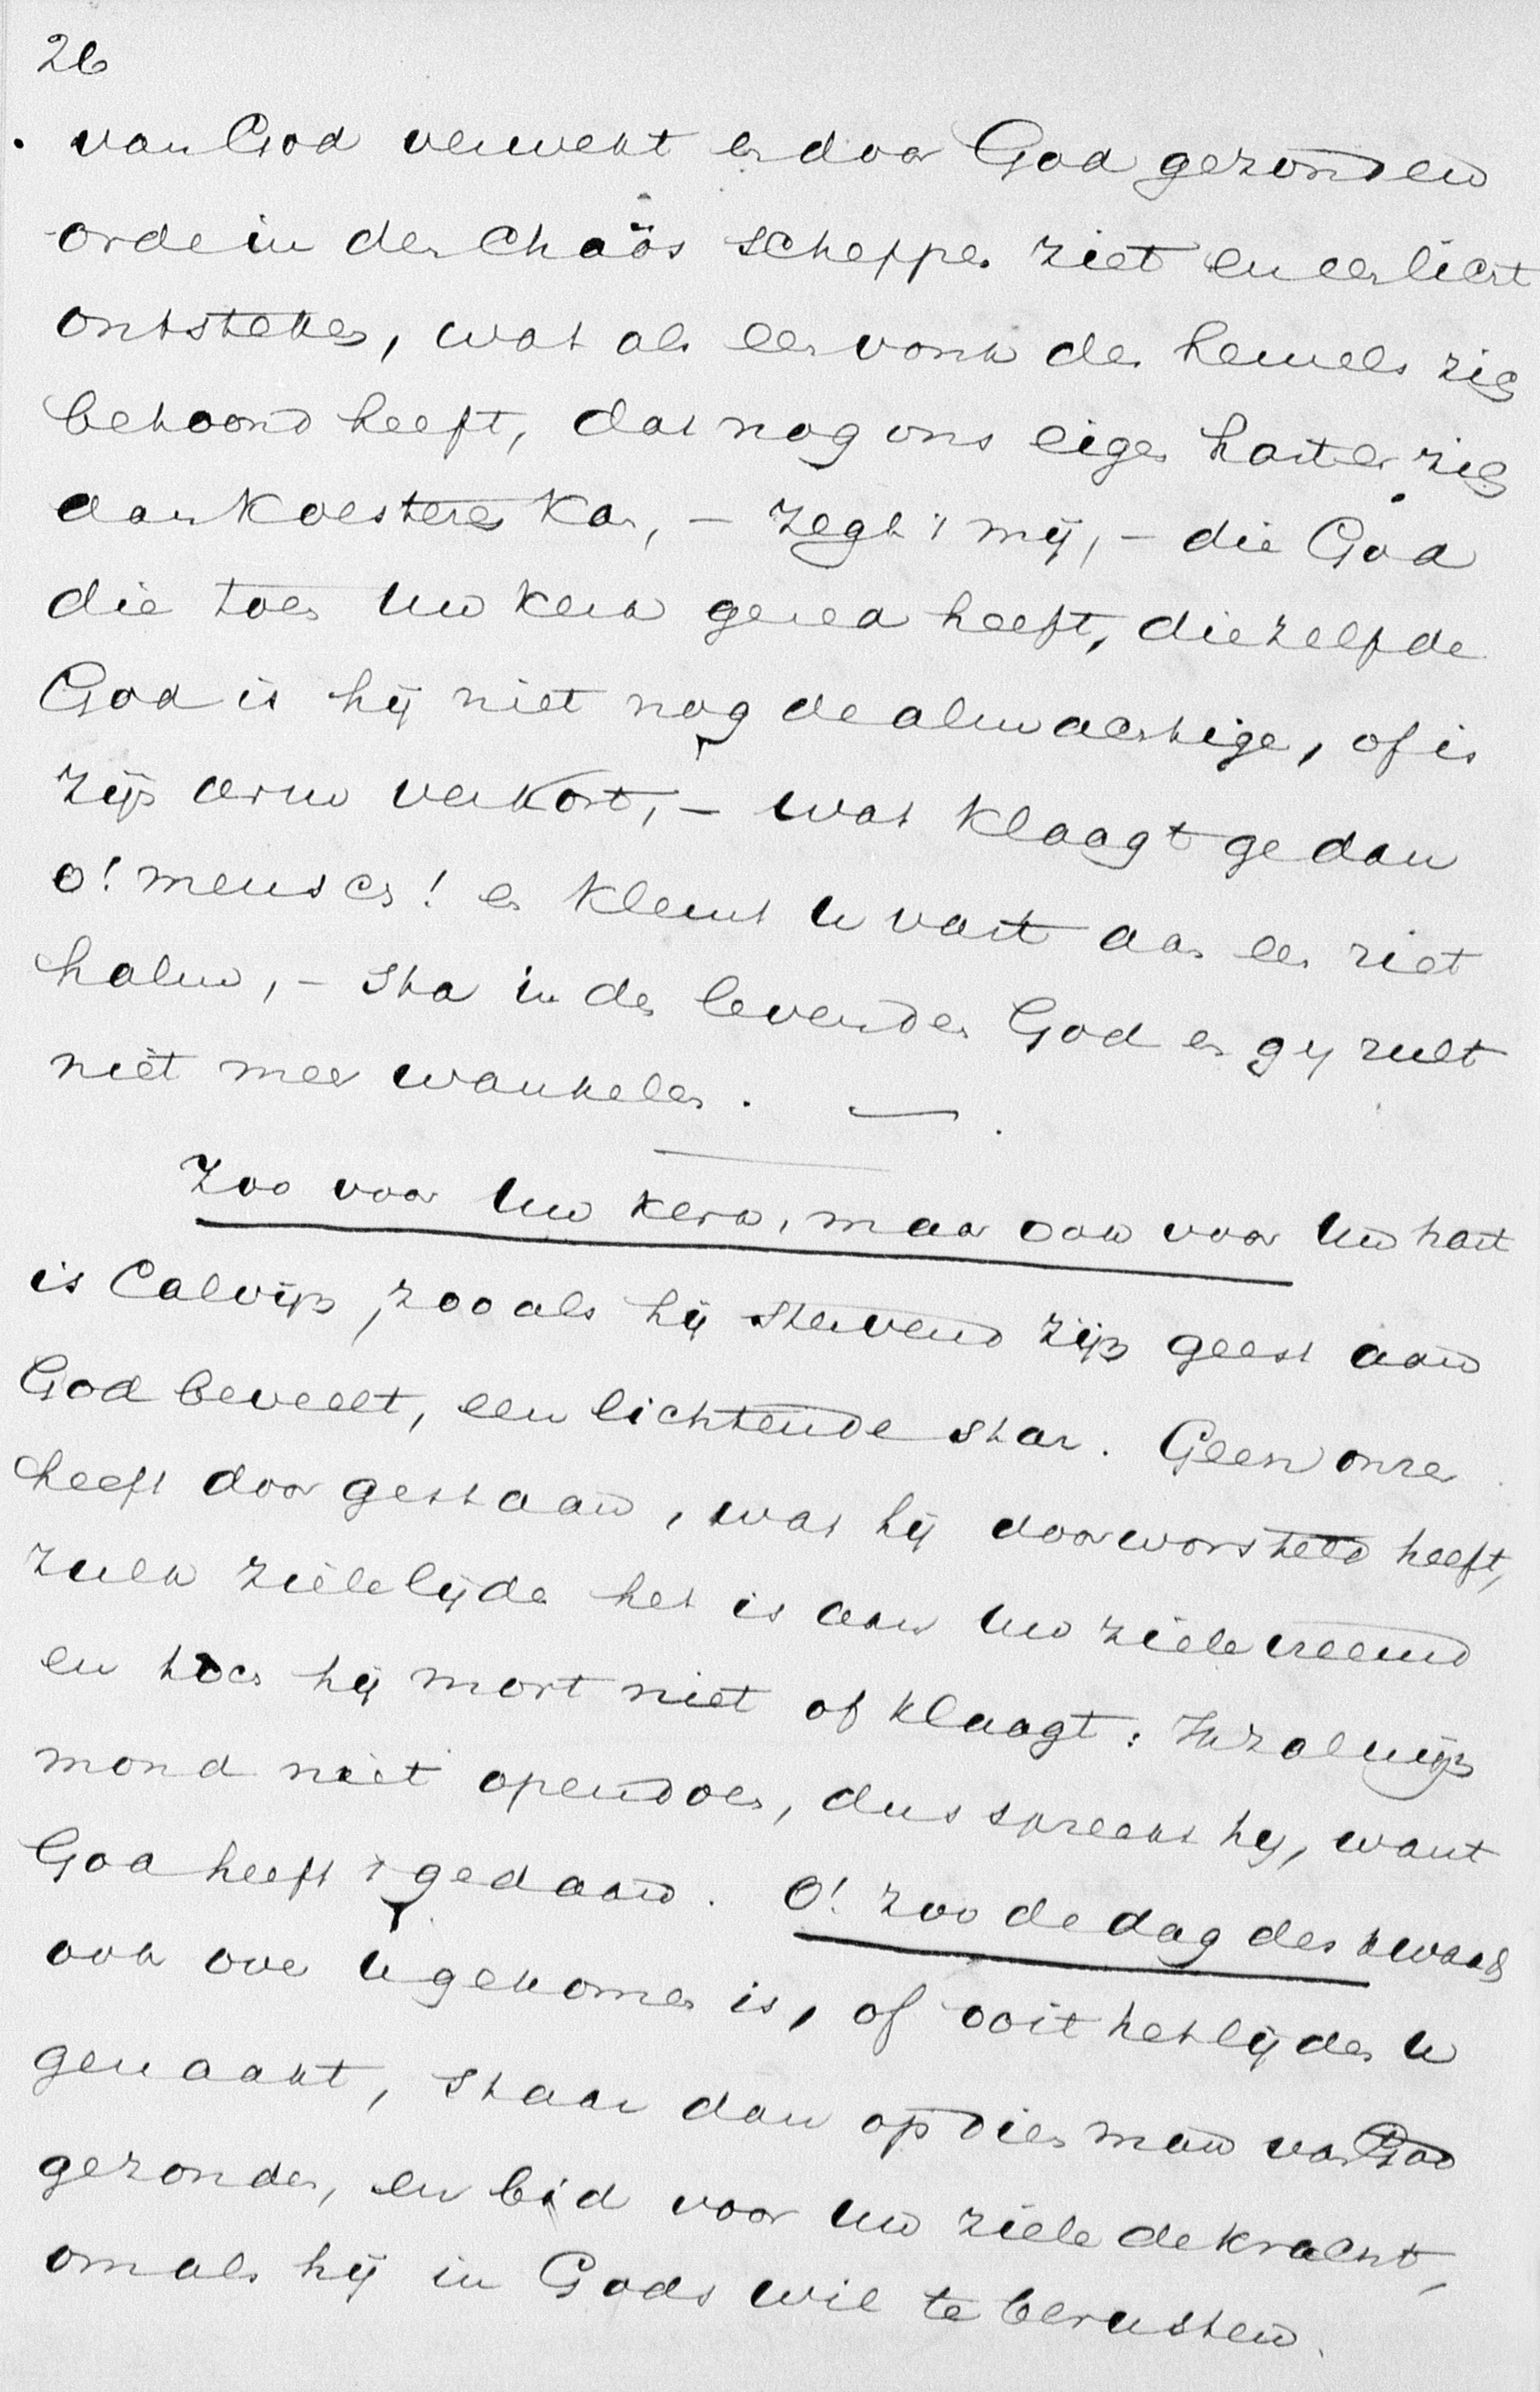 26
van God verwekt en door God gezonden
orde in den Chaös scheppen ziet en een licht
ontsteken, wat als een vonk des hemels zich
betoond heeft, dat nog ons eigen hart er zich
aan koesteren kan, – zegt 't mij, – die God
die toen Uw kerk gered heeft, diezelfde
God is hij niet nog de almachtige, of is
zijn arm verkort, – wat klaagt ge dan
o! mensch! en klemt U vast aan een riet
halm, – sta in den levenden God en gij zult
niet meer wankelen. —.
Zoo voor Uw kerk, maar ook voor Uw hart
is Calvijn, zooals hij stervend zijn geest aan
God beveelt, een lichtende star. Geen onzer
heeft doorgestaan, wat hij doorworsteld heeft,
zulk zielelijden het is aan Uw ziele vreemd
en toch hij mort niet of klaagt: Ik zal mijn
mond niet opendoen, dus spreekt hij, want
God heeft 't gedaan. O! zoo de dag des kwaads
ook over U gekomen is, of ooit het lijden U
genaakt, staar dan op dien man van God
gezonden, en bid voor Uw ziele de kracht,
om als hij in Gods wil te berusten.